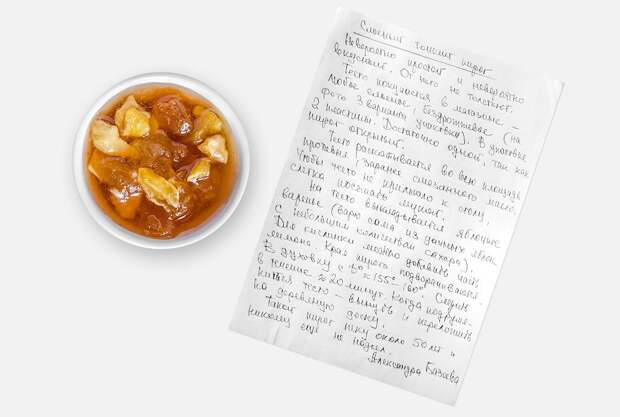 Слоеный тонкий пирог
Невероятно простой и невероятно
вкусный. От него не толстеют.
Тесто покупается в магазине –
любое слоеное, бездрожжевое (на
фото 3 варианта упаковки). В упаковке
2 пластины. Достаточно одной, так как
пирог открытый.
Тесто раскатывается во всю площадь
противня (заранее смазанного маслом,
чтобы тесто не прилипало к
слегка посыпать мукой).
На тесто выкладывается яблочное
варенье (варю сама из дачных яблок
с небольшим количеством сахара).
Для кислинки можно добавить чать
лимона. Края пирога подворачиваются.
В духовку с t° ≈ 155° – 160°. Следить
в течение ≈ 20 минут. Когда подрумя-
нится тесто – вынуть и переложить
на деревянную доску.
Такой пирог пеку около 50 лет и
никому еще не надоел.
Александра Базеева